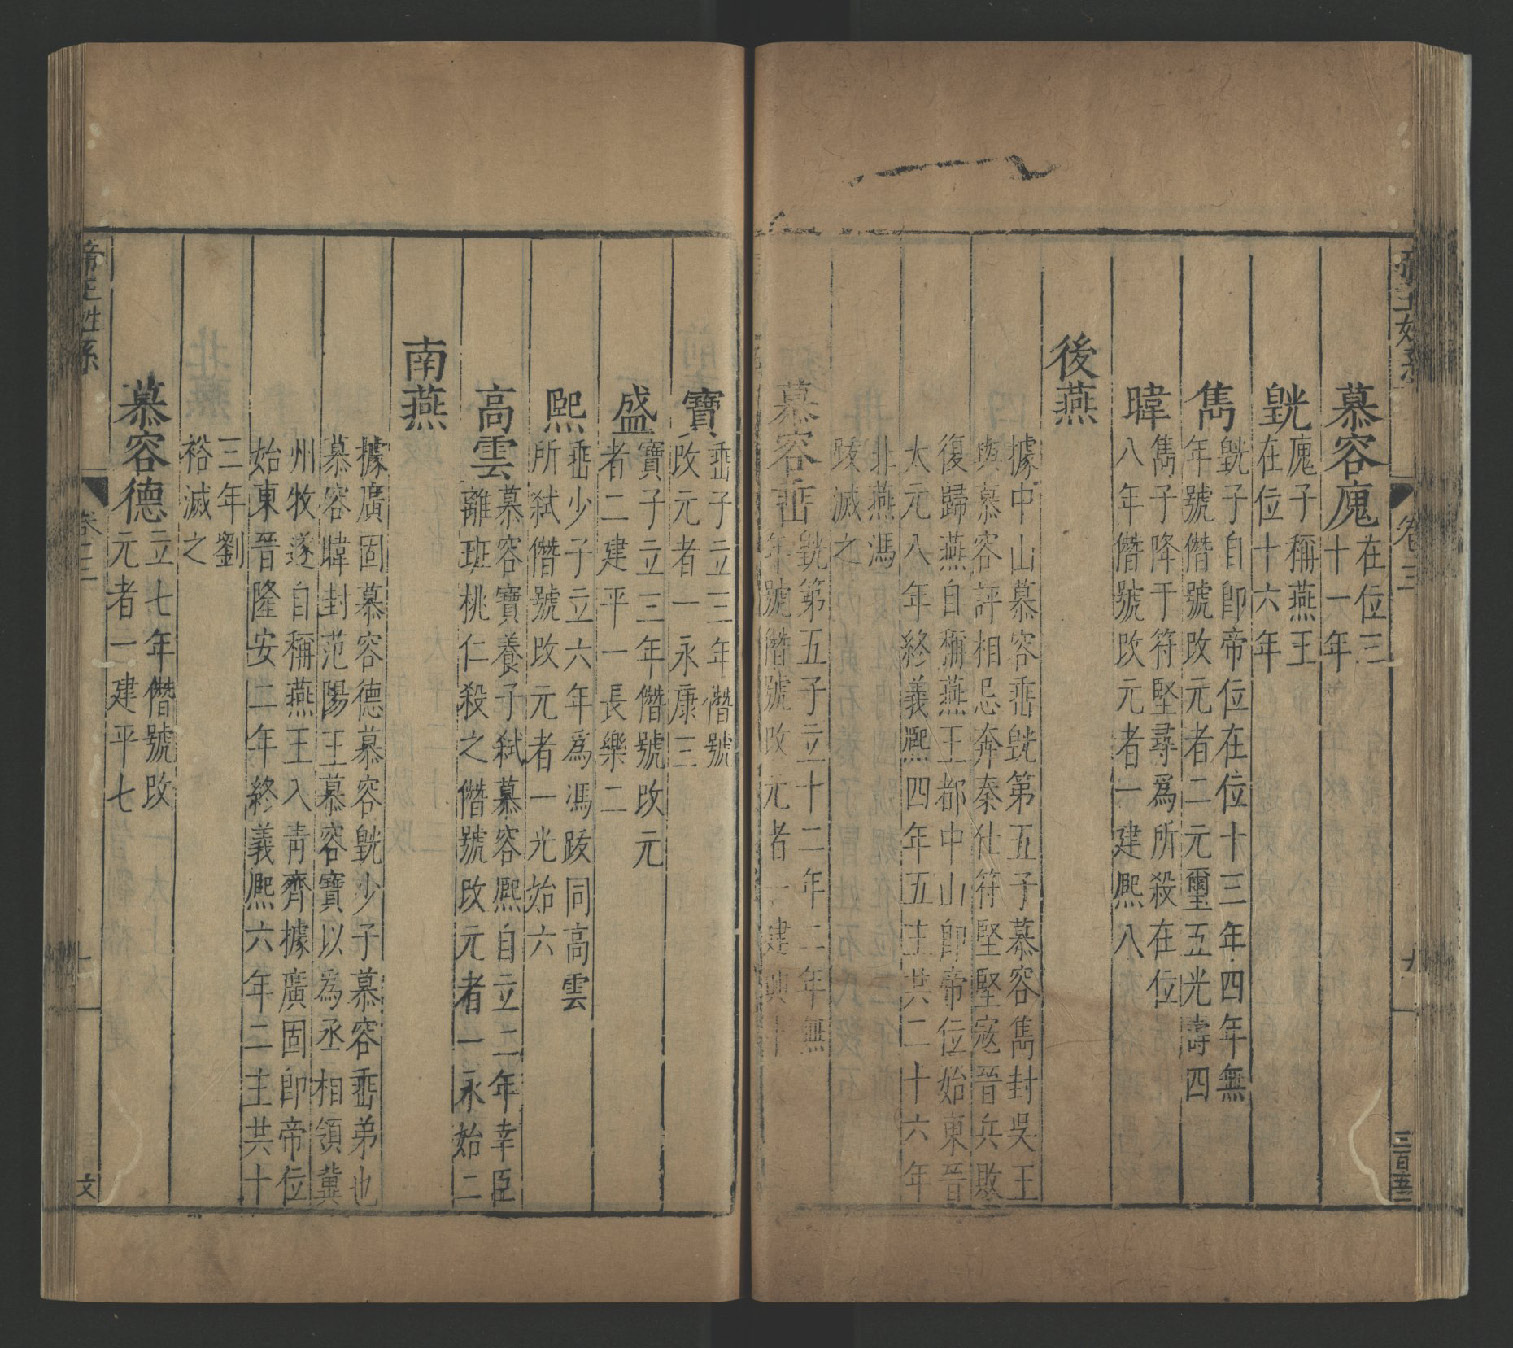 慕容廆在位三
十一年
皝廆子稱燕王
在位十六年
雋皝子自卽帝位在位十三年四年無
年號僭號改元者二元璽五光壽四
暐雋子降于符堅尋爲所殺在位
八年僭號改元者一建熙八
後燕
據中山慕容垂皝第五子慕容雋封吳王
與慕容評相忌奔秦仕符堅堅寇晉兵敗
復歸燕自稱燕王都中山卽帝位始東晉
太元八年終義熙四年五主共二十六年
北燕馮
跋滅之
慕容垂皝第五子立十二年二年無
年號僭號改元者一建興十
寶垂子立三年僭號
改元者一永康三
盛寶子立三年僭號改元
者二建平一長樂二
熙垂少子立六年爲馮跋同高雲
所弒僭號改元者一光始六
高雲慕容寶養子弒慕容熙自立二年幸臣
離班桃仁殺之僭號改元者一永始二
南燕
據廣固慕容德慕容皝少子慕容垂弟也
慕容暐封范陽王慕容寶以爲丞相領冀
州牧遂自稱燕王入青齊據廣固卽帝位
始東晉隆安二年終義熙六年二主共十
三年劉
裕滅之
慕容德立七年僭號改
元者一建平七
帝王姓系
卷三